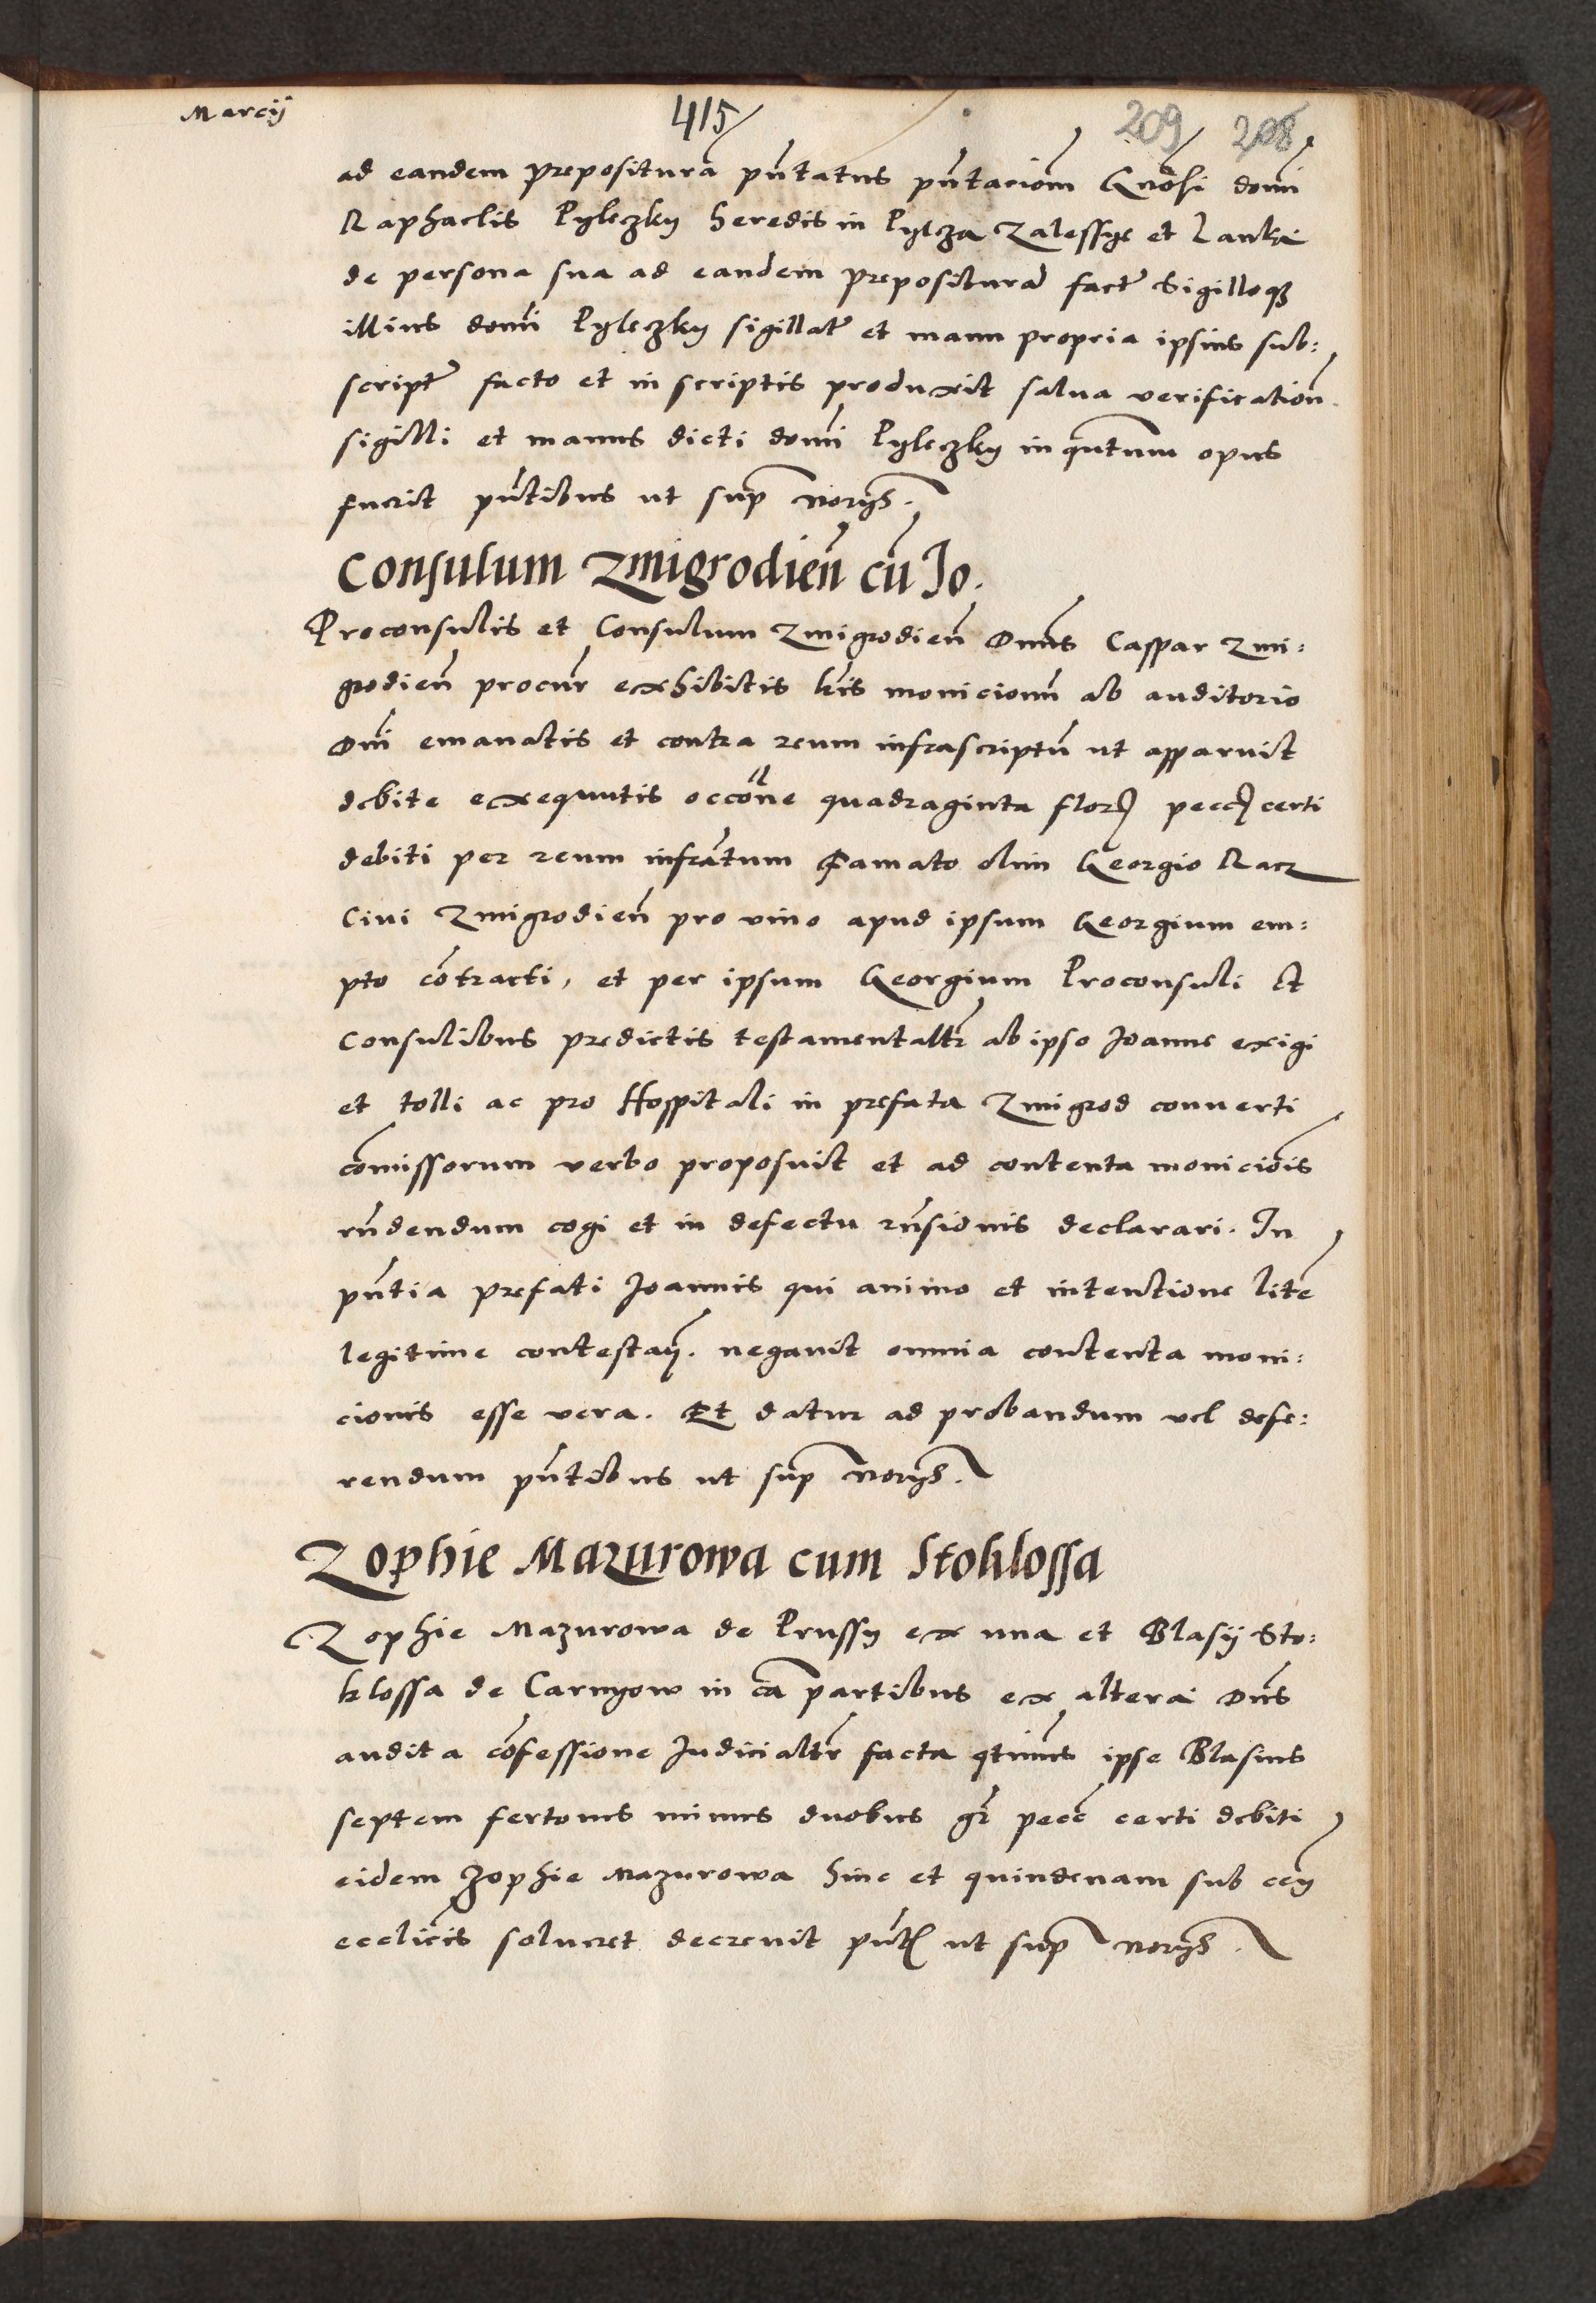 Marcij
415
209 208
ad eandem prepositurã pñtatus pñtacioñ Gnõsi domñi
Raphaelis Pyleczky heredis in Pylcza Zalessye et Lanka
de persona sua ad eandem prepositurã fact~ Sigilloqz
illius domñi Pyleczky sigillat~ et manu propria ipsius sub:
script~ facto et in scriptis produxit salua verificatioñ
sigilli et manus dicti domñi Pyleczky in qutum opus
fuerit pñtibus ut sup norys.
Consulum Zmigrodieñ cũ Jo.
Proconsulis et Consulum Zmigrodieñ Dñus Caspar Zmi:
grodieñ procur~ exhibitis lris monicionũ ab auditorio
Dñi emanatis et contra reum infrascriptũ ut apparuit
debite exequutis occõne quadraginta flor~ pecc~ certi
debiti per reum infrãtum Famato olim Georgio Racz
Ciui Zmigrodieñ pro vino apud ipsum Georgium em:
pto cõtracti, et per ipsum Georgium Proconsuli Et
Consulibus predictis testamentaltr~ ab ipso Joanne exigi
et tolli ac pro Hospitali in prefata Zmigrod conuerti
cõmissorum verbo proposuit et ad contenta moniciõis
rñdendum cogi et in defectu rñsionis declarari. In
pñtia prefati Joannis qui animo et intentione litẽ
legitime contestañ. negauit omnia contenta moni:
cionis esse vera. Et datur ad probandum vel defe:
rendum pñtibus ut sup norys.
Zophie Mazurowa cum Stoklossa
Zophie Mazurowa de Prussy ex una et Blasij Sto:
klossa de Carnyow in cã partibus ex altera Dñs
audita cõfessione Judicialtr~ facta qtinus ipse Blasius
septem fertones minus duobus gr~ pecc~ certi debiti
eidem Zophie Mazurowa hinc et quindenam sub cen
ecclicis solueret decreuit pñt ut sup norys.